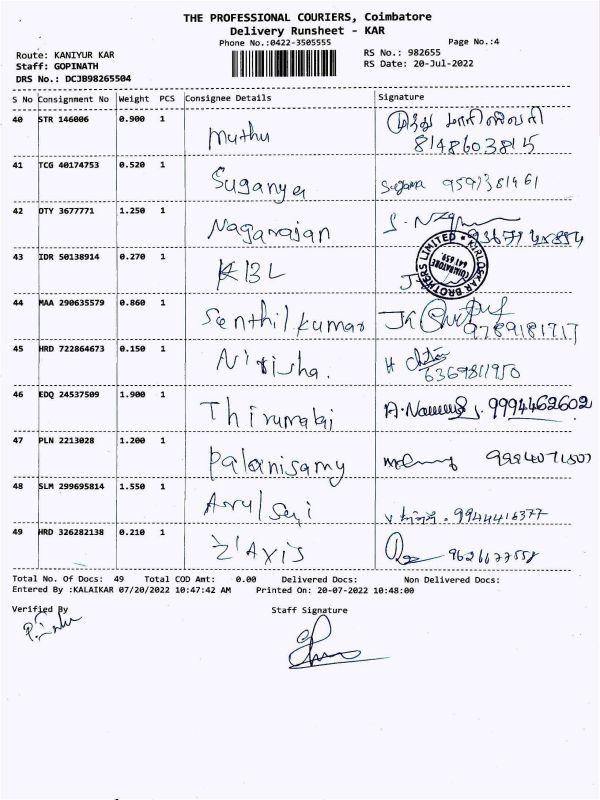 THE PROFESSIONAL COURIERS, Coimbatore
Delivery Runsheet - KAR
Phone No.:0422-3505555 Page No.:4
Route: KANIYUR KAR RS No.: 982655
Staff: GOPINATH RS Date: 20-Jul-2022
DRS No.: DCJB98265504
S No Consignment No Weight PCS Consignee Details Signature
40 STR 146006 0.900 1 Muthu
8148603815
41 TCG 40174753 0.520 1 Suganya
42 DTY 3677771 1.250 1 Nagarajan
43 IDR 50138914 0.270 1 KBL
KIRLOSKAR BROTHERS LIMITED
COIMBATORE
641 659.
44 MAA 290635579 0.860 1 Senthil kumar
9789181717
45 HRD 722864673 0.150 1
6369811950
46 EDQ 24537509 1.900 1 Thirumalai 9994462602
47 PLN 2213028 1.200 1 Palanisamy
48 SLM 299695814 1.550 1 9944416377
49 HRD 326282138 0.210 1 Z'AXIS
Total No. Of Docs: 49 Total COD Amt: 0.00 Delivered Docs: Non Delivered Docs:
Entered By :KALAIKAR 07/20/2022 10:47:42 AM Printed On: 20-07-2022 10:48:00
Verified By Staff Signature